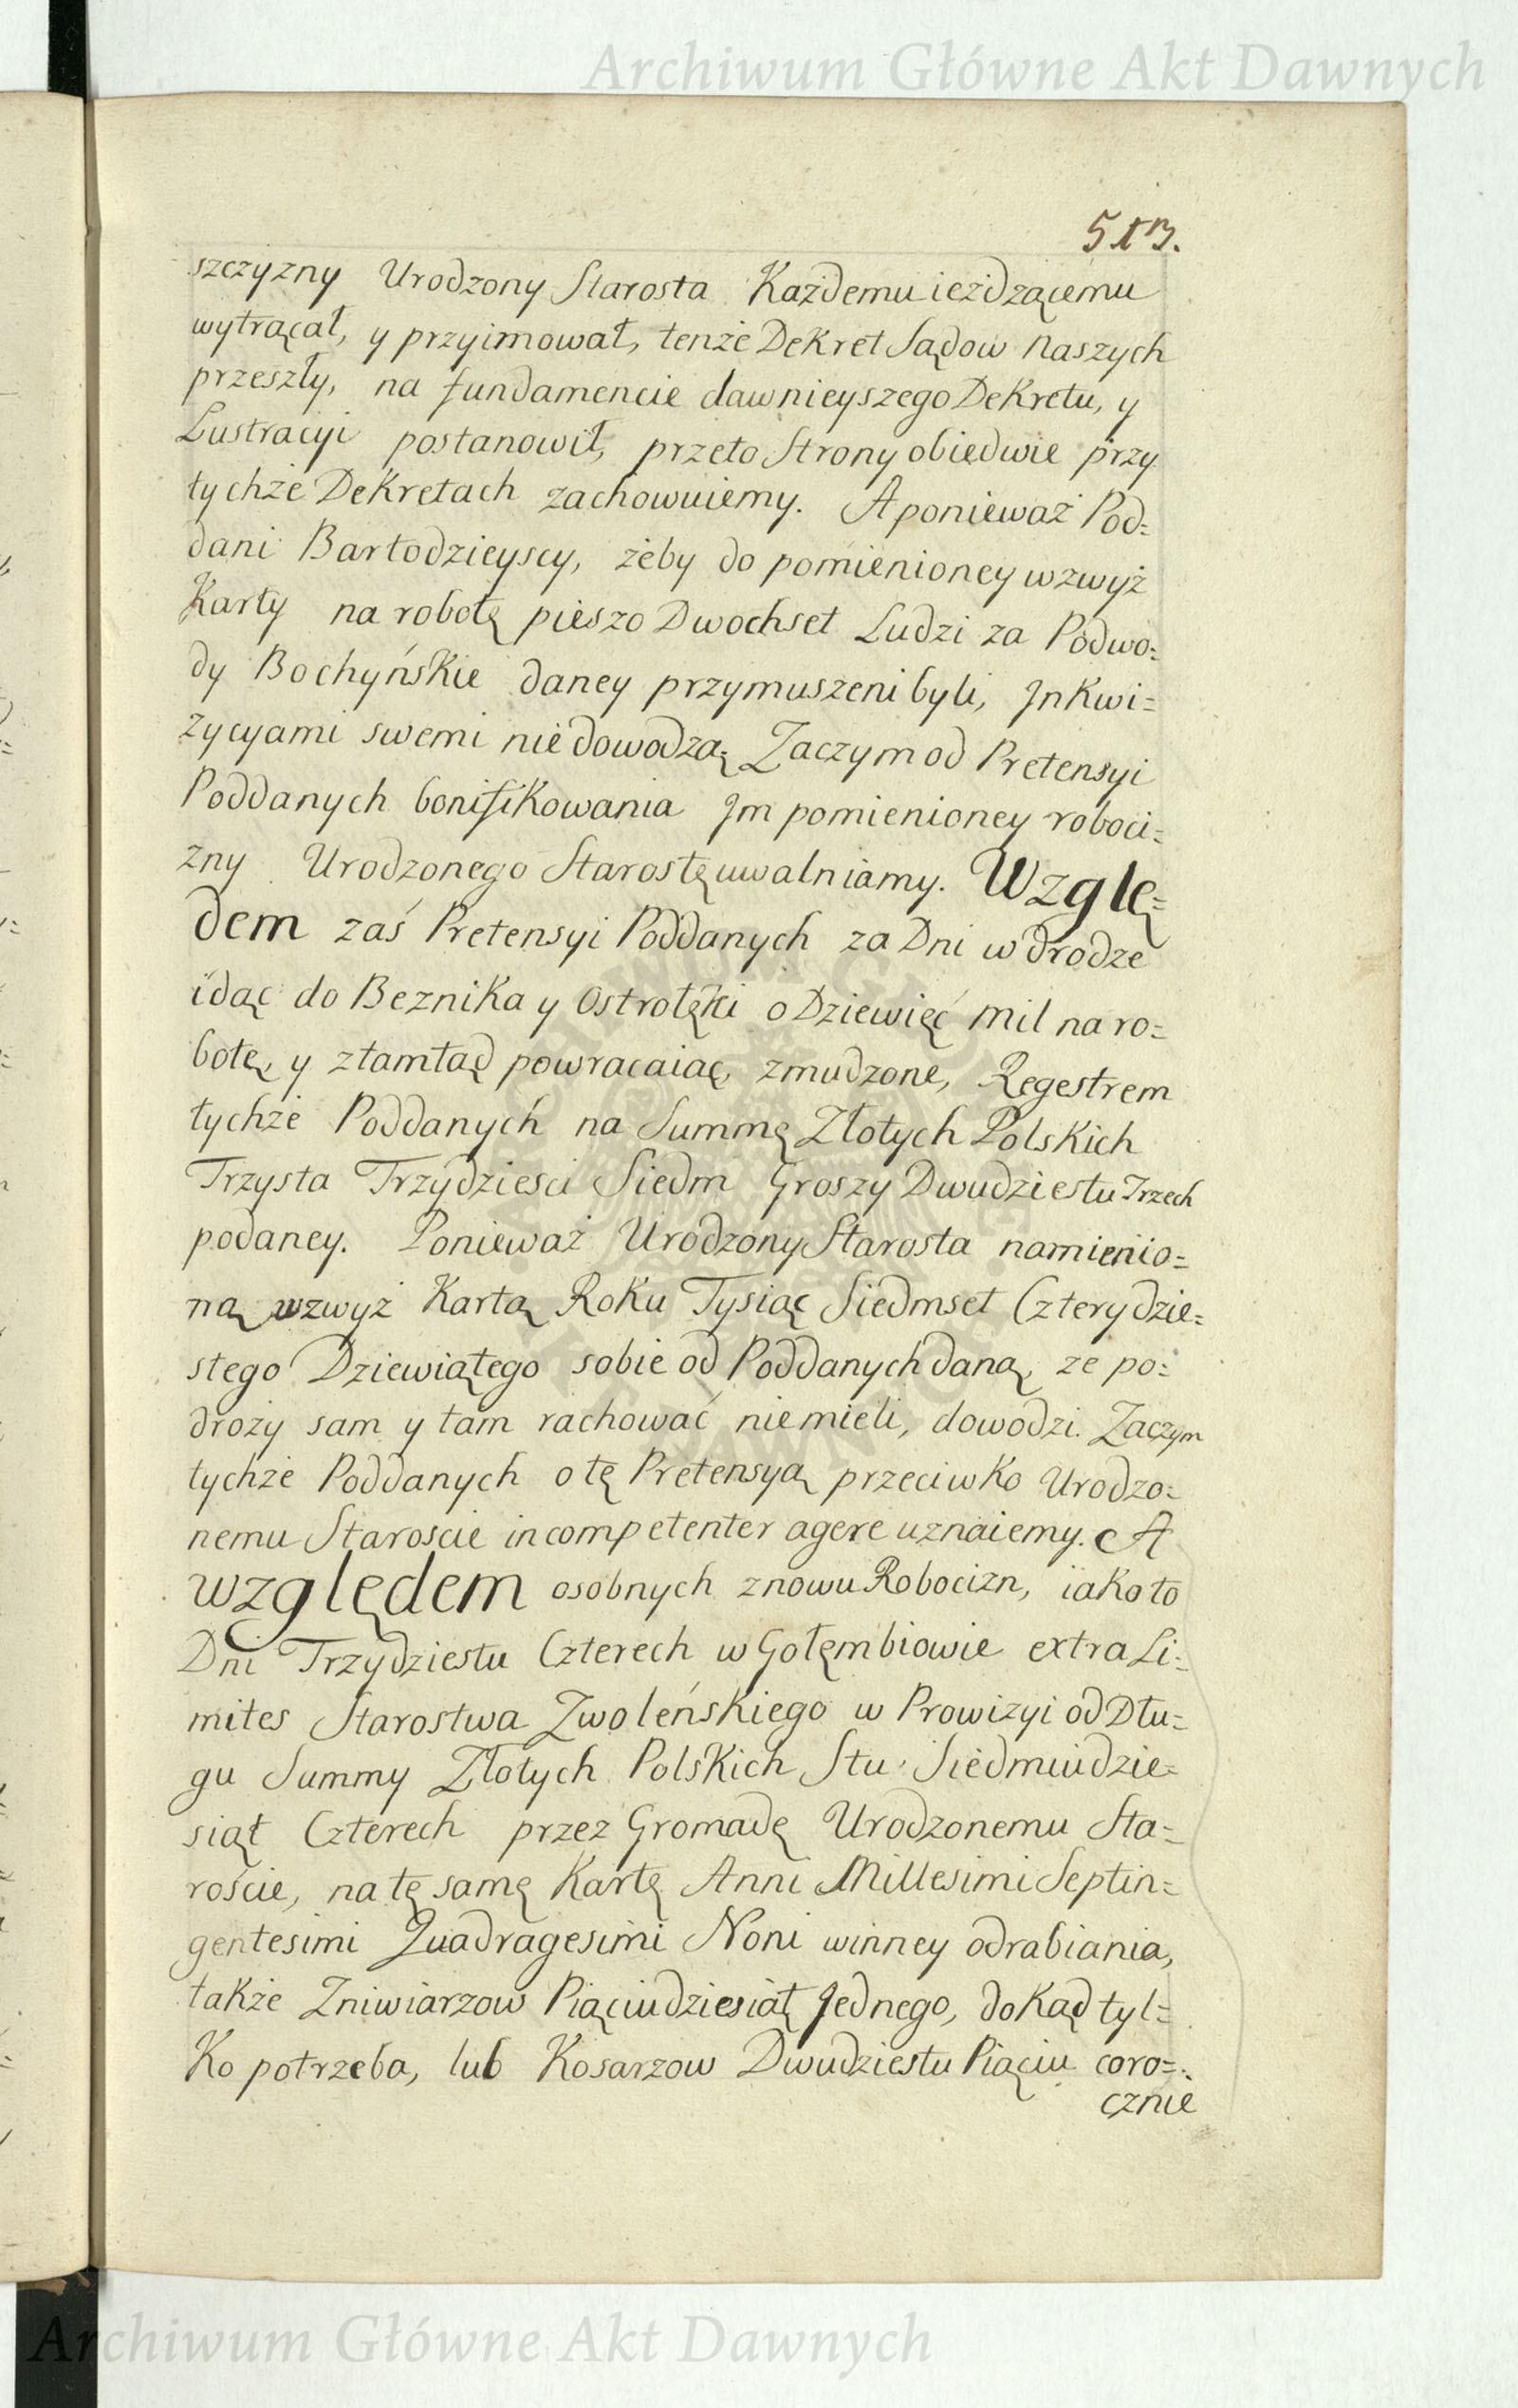 Archiwum Główne Akt Dawnych
szczyzny Urodzony Starosta Każdemu ieżdzącemu
wytrącał, y przyimował, tenże Dekret Sądow naszych
przeszły, na fundamencie dawnieyszego Dekretu, y
Lustracyi postanowił, przeto Strony obiedwie przy
tychże Dekretach zachowuiemy. A ponieważ Pod=
dani Bartodzieyscy, żeby do pomienioney wzwyż
Karty na robotę pieszo Dwochset Ludzi za Podwo=
dy Bochyńskie daney przymuszeni byli, Jnkwi=
zycyami swemi nie dowodzą, Zaczym od Pretensyi
Poddanych bonifikowania Jm pomienioney roboci=
zny Urodzonego Starostę uwalniamy. Wzglę=
dem zaś Pretensyi Poddanych za Dni w drodze
idąc do Beznika y Ostrołęki o Dziewięć mil na ro=
botę, y ztamtąd powracaiąc, zmudzone, Regestrem
tychże Poddanych na Summę Złotych Polskich
Trzysta Trzydziesci Siedm Groszy Dwudziestu Trzech
podaney. Ponieważ Urodzony Starosta namienio=
ną wzwyż Kartą Roku Tysiąc Siedmset Czterydzie=
stego Dziewiątego sobie od Poddanych daną, ze po=
droży sam y tam rachować niemieli, dowodzi. Zaczym
tychże Poddanych o tę Pretensyą przeciwko Urodzo=
nemu Staroscie incompetenter agere uznaiemy. A
względem osobnych znowu Robocizn, iako to
Dni Trzydziestu Czterech w Gołęmbiowie extra Li=
mites Starostwa Zwoleńskiego w Prowizyi od Dłu=
gu Summy Złotych Polskich Stu Siedmiudzie=
siąt Czterech przez Gromadę Urodzonemu Sta=
roście, na tę samę Kartę Anni Millesimi Septin=
gentesimi Quadragesimi Noni winney odrabiania,
także Zniwiarzow Piąciudziesiąt Jednego, dokąd tyl=
Ko potrzeba, lub Kosarzow Dwudziestu Piąciu coro=
cznie
Archiwum Główne Akt Dawnych